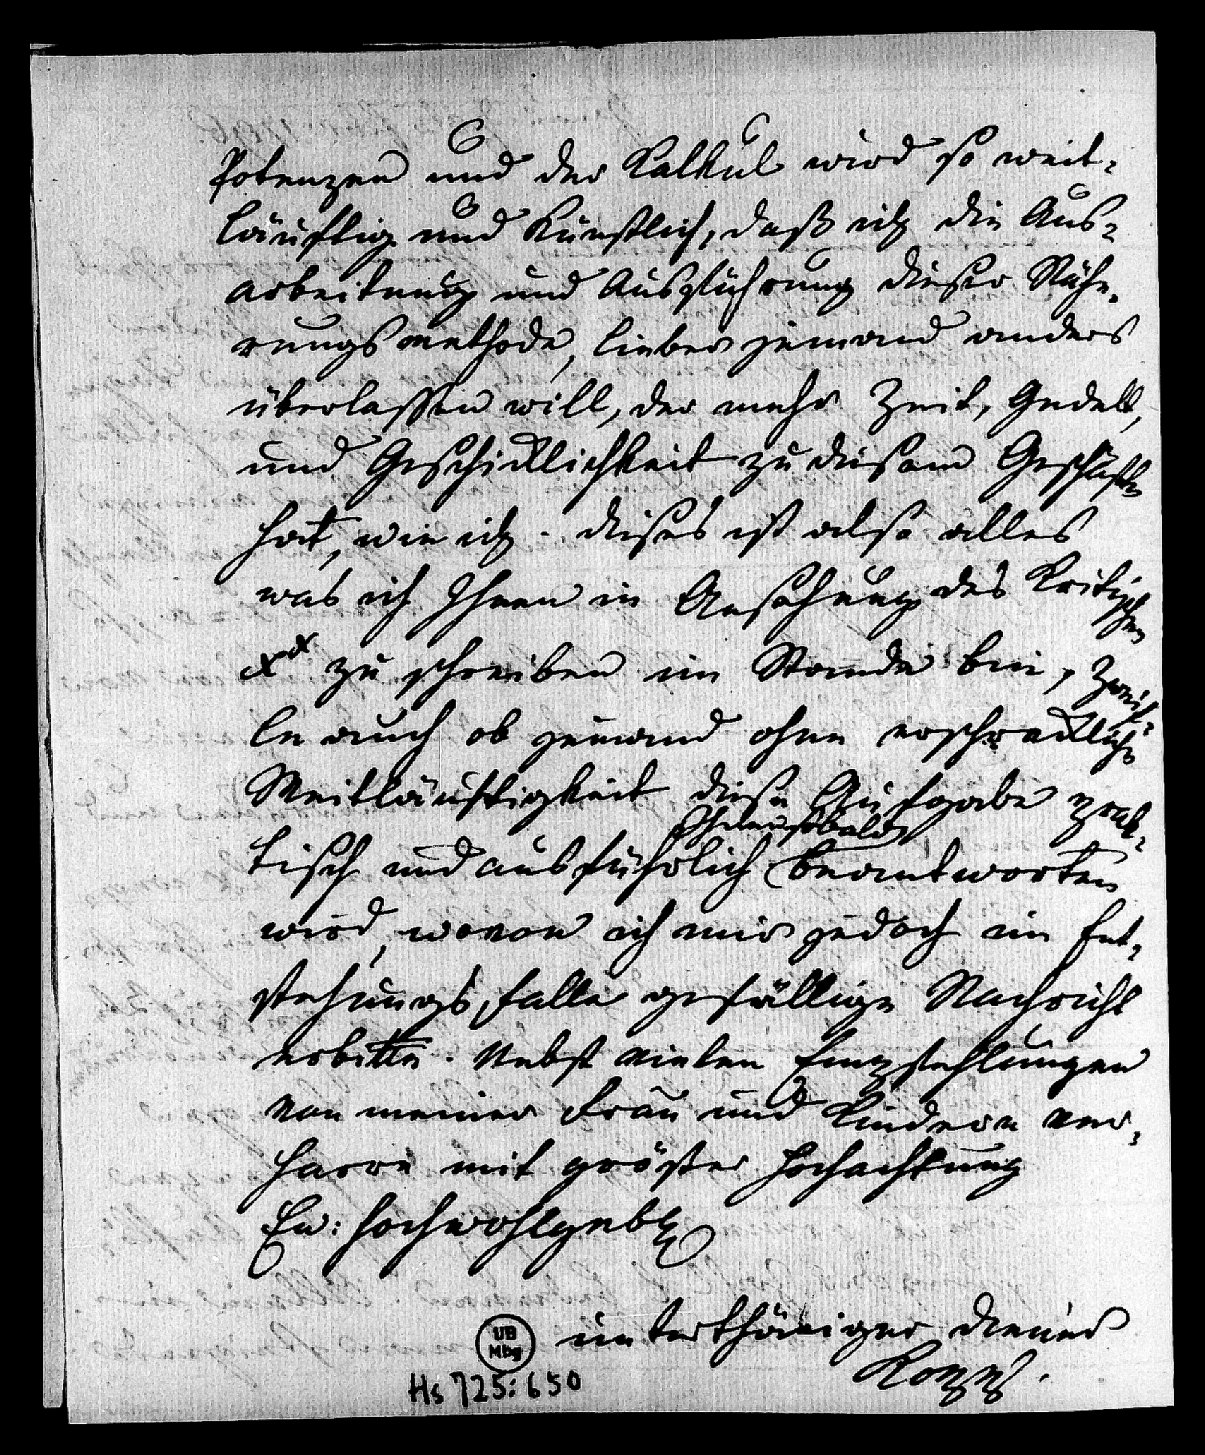 Potenzen und der Kalkul wird so weit-
läuftig und künstlich, daß ich die Aus-
arbeitung und Ausführung dieser Nähe-
rungsmethode, lieber jemand anders
überlassen will, der mehr Zeit, Gedult,
und Geschicklichkeit zu diesem Geschäfte
hat, wie ich. dieses ist also alles
was ich Ihnen in Ansehung des kritischen
x^x zu schreiben im Stande bin, zweif-
le auch ob jemand ohne erschreckliche
Weitläuftigkeit diese Aufgabe prak-
Ihnen sobald
tisch und ausführlich beantworten
wird, wovon ich mir jedoch im Ent-
stehungsfalle gefällige Nachricht
erbitte. Nebst vielen Empfehlungen
von meiner Frau und Kindern ver-
harre mit gröster Hochachtung
Ew: Hochwohlgeb
unterthäniger Diener
UB
Mbg
Hs 725:650